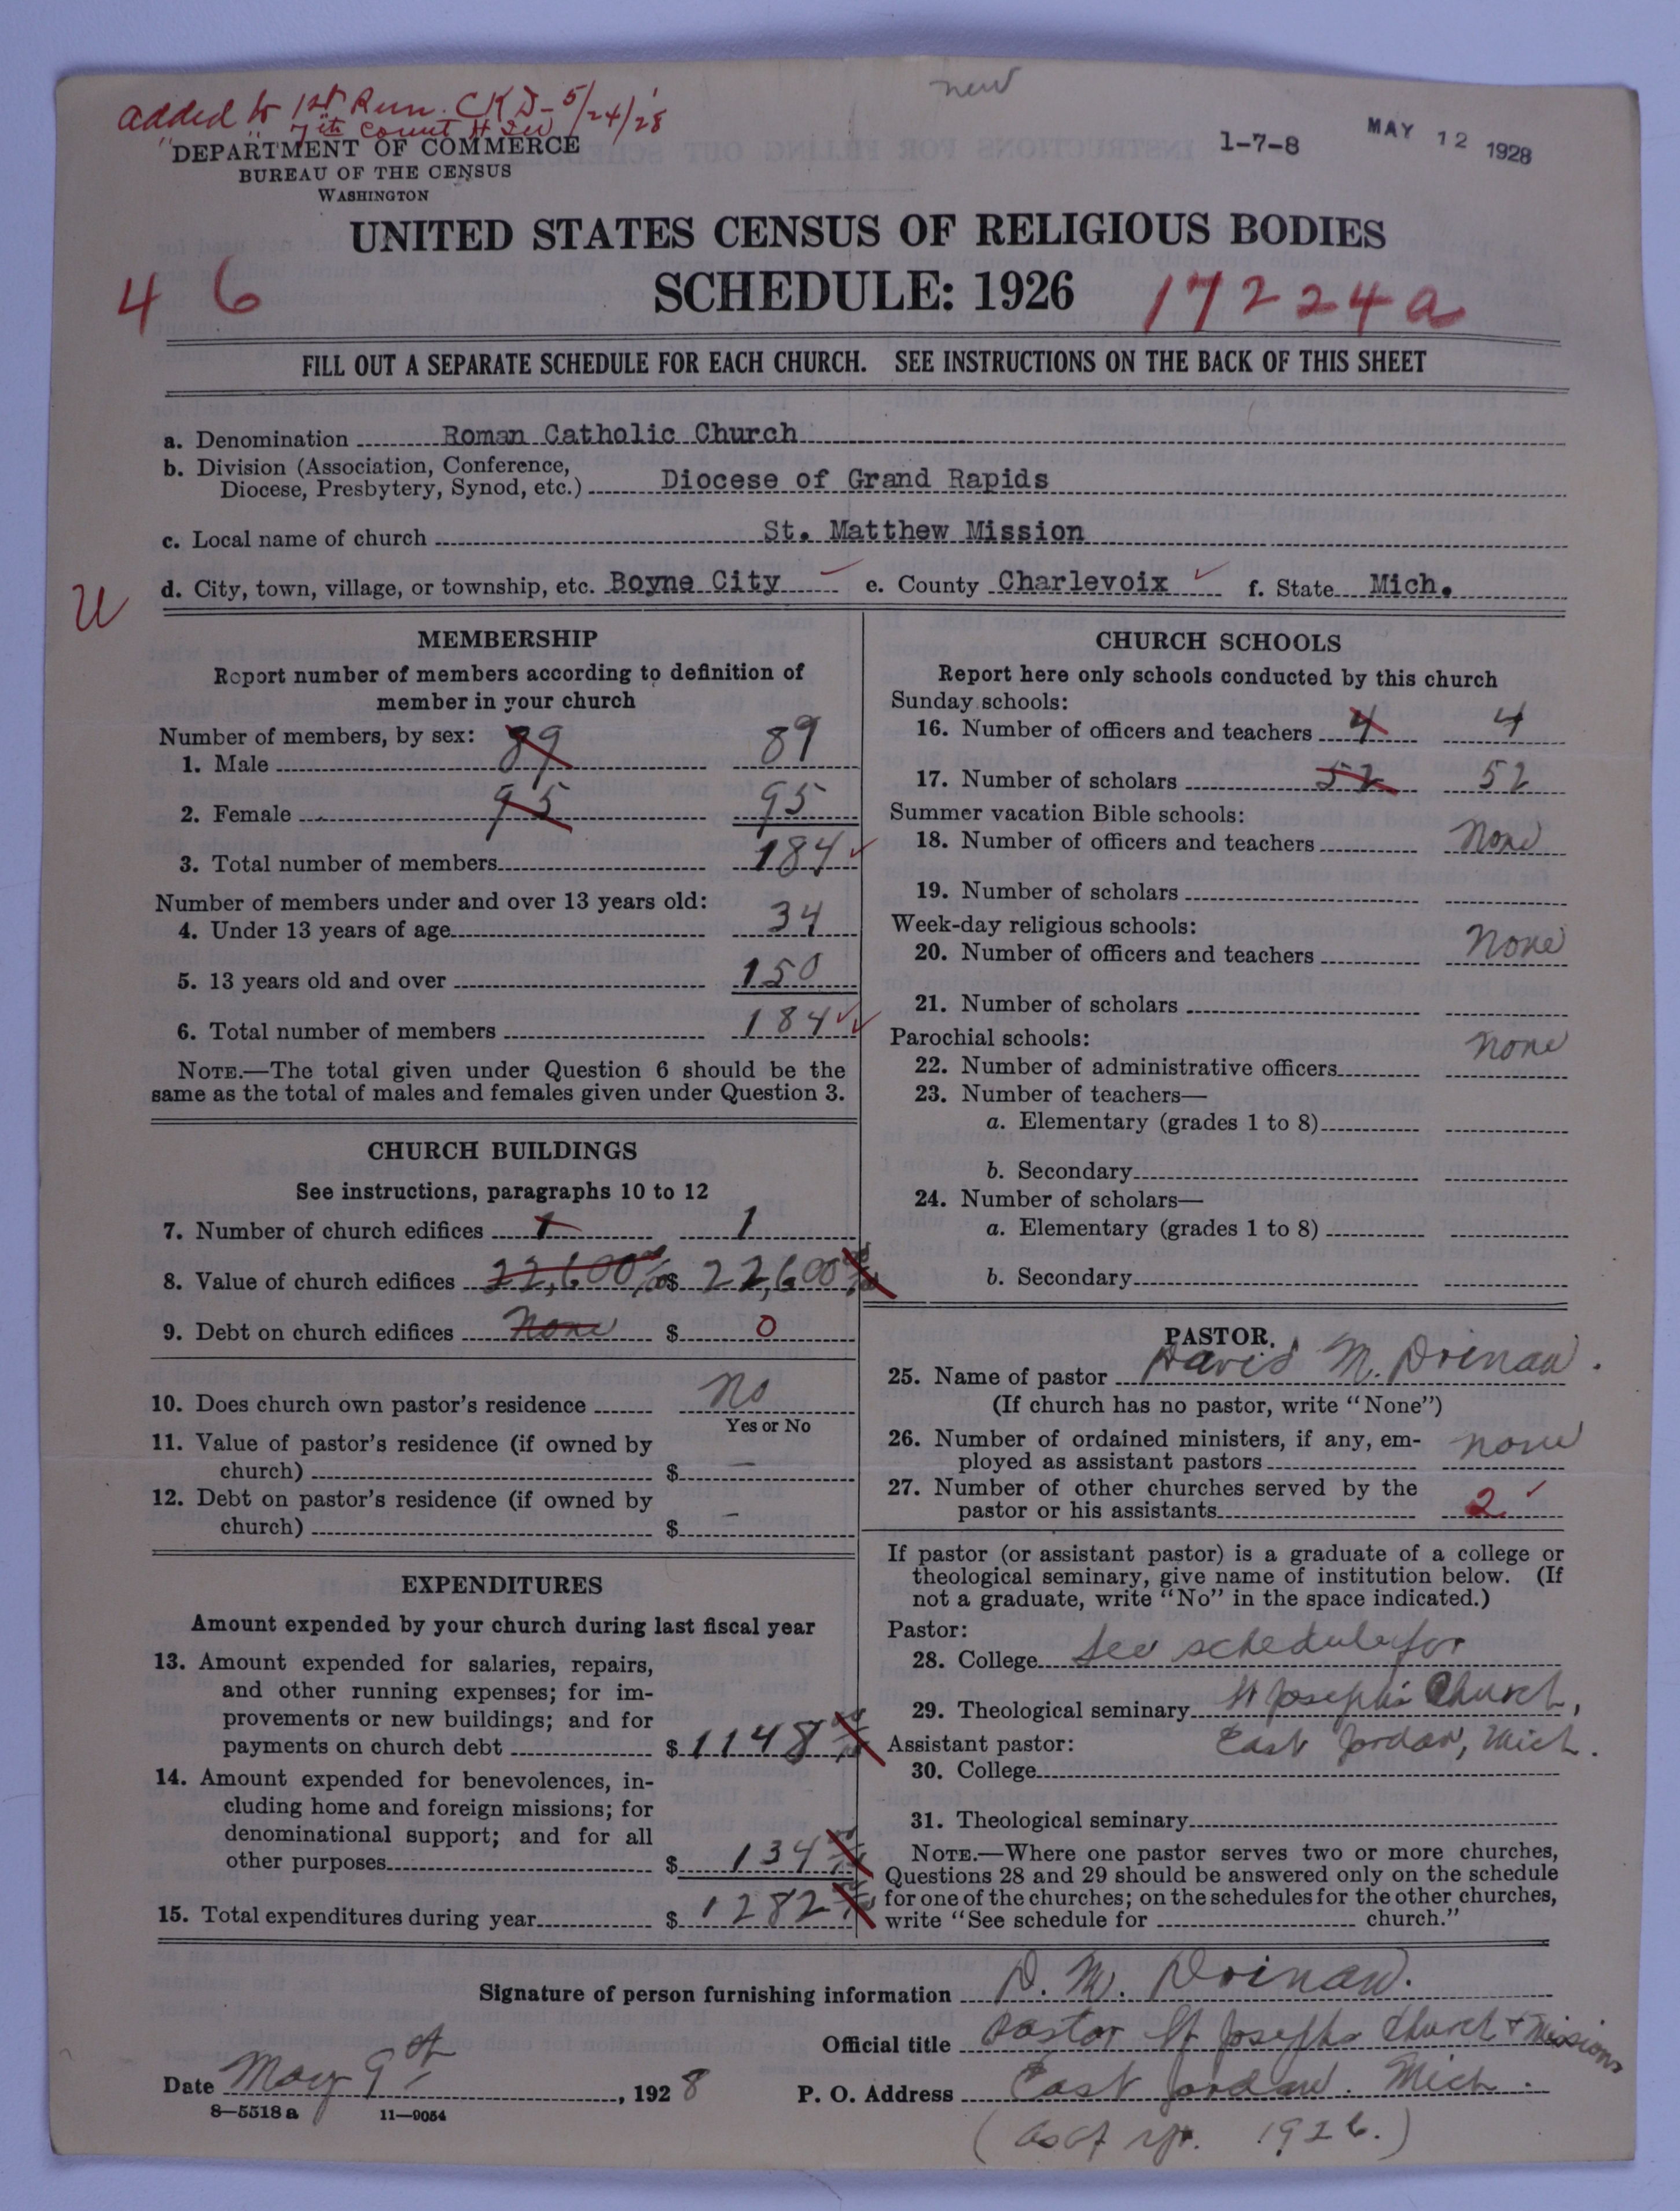 new
added to 1st Run. CKD-5/24/28
" 7th Count
DEPARTMENT OF COMMERCE
BUREAU OF THE CENSUS
WASHINGTON
1-7-8
MAY 12 1928
UNITED STATES CENSUS OF RELIGIOUS BODIES
SCHEDULE: 1926
4 6
17224a
FILL OUT A SEPARATE SCHEDULE FOR EACH CHURCH. SEE INSTRUCTIONS ON THE BACK OF THIS SHEET
a. Denomination Roman Catholic Church
b. Division (Association, Conference,
Diocese, Presbytery, Synod, etc.) Diocese of Grand Rapids
c. Local name of church St. Matthew Mission
U
d. City, town, village, or township, etc. Boyne City ✓ e. County Charlevoix ✓ f. State Mich.
MEMBERSHIP
Report number of members according to definition of
member in your church
Number of members, by sex:
1. Male 89 89
2. Female 95 95
3. Total number of members 184 ✓
Number of members under and over 13 years old:
4. Under 13 years of age 34
5. 13 years old and over 150
6. Total number of members 184 ✓✓
NOTE.—The total given under Question 6 should be the
same as the total of males and females given under Question 3.
CHURCH BUILDINGS
See instructions, paragraphs 10 to 12
7. Number of church edifices 1 1
8. Value of church edifices 22,600 $ 22,600
9. Debt on church edifices None $ 0
10. Does church own pastor's residence No
Yes or No
11. Value of pastor's residence (if owned by
church) $ —
12. Debt on pastor's residence (if owned by
church) $ —
EXPENDITURES
Amount expended by your church during last fiscal year
13. Amount expended for salaries, repairs,
and other running expenses; for im-
provements or new buildings; and for
payments on church debt $ 1148
14. Amount expended for benevolences, in-
cluding home and foreign missions; for
denominational support; and for all
other purposes $ 134
15. Total expenditures during year $ 1282
CHURCH SCHOOLS
Report here only schools conducted by this church
Sunday schools:
16. Number of officers and teachers 4 4
17. Number of scholars 52 52
Summer vacation Bible schools:
18. Number of officers and teachers None
19. Number of scholars
Week-day religious schools:
20. Number of officers and teachers None
21. Number of scholars
Parochial schools:
22. Number of administrative officers None
23. Number of teachers—
a. Elementary (grades 1 to 8)
b. Secondary
24. Number of scholars—
a. Elementary (grades 1 to 8)
b. Secondary
PASTOR
25. Name of pastor David M. Drinan.
(If church has no pastor, write "None")
26. Number of ordained ministers, if any, em-
ployed as assistant pastors none
27. Number of other churches served by the
pastor or his assistants 2 ✓
If pastor (or assistant pastor) is a graduate of a college or
theological seminary, give name of institution below. (If
not a graduate, write "No" in the space indicated.)
Pastor:
28. College See schedule for
29. Theological seminary St Joseph's Church,
Assistant pastor: East Jordan, Mich.
30. College
31. Theological seminary
NOTE.—Where one pastor serves two or more churches,
Questions 28 and 29 should be answered only on the schedule
for one of the churches; on the schedules for the other churches,
write "See schedule for church."
Signature of person furnishing information D. M. Drinan.
Official title Pastor St Josephs Church + Missions
Date May 9th, 1928 P. O. Address East Jordan. Mich.
8—5518 a 11—9054
(as of yr. 1926.)